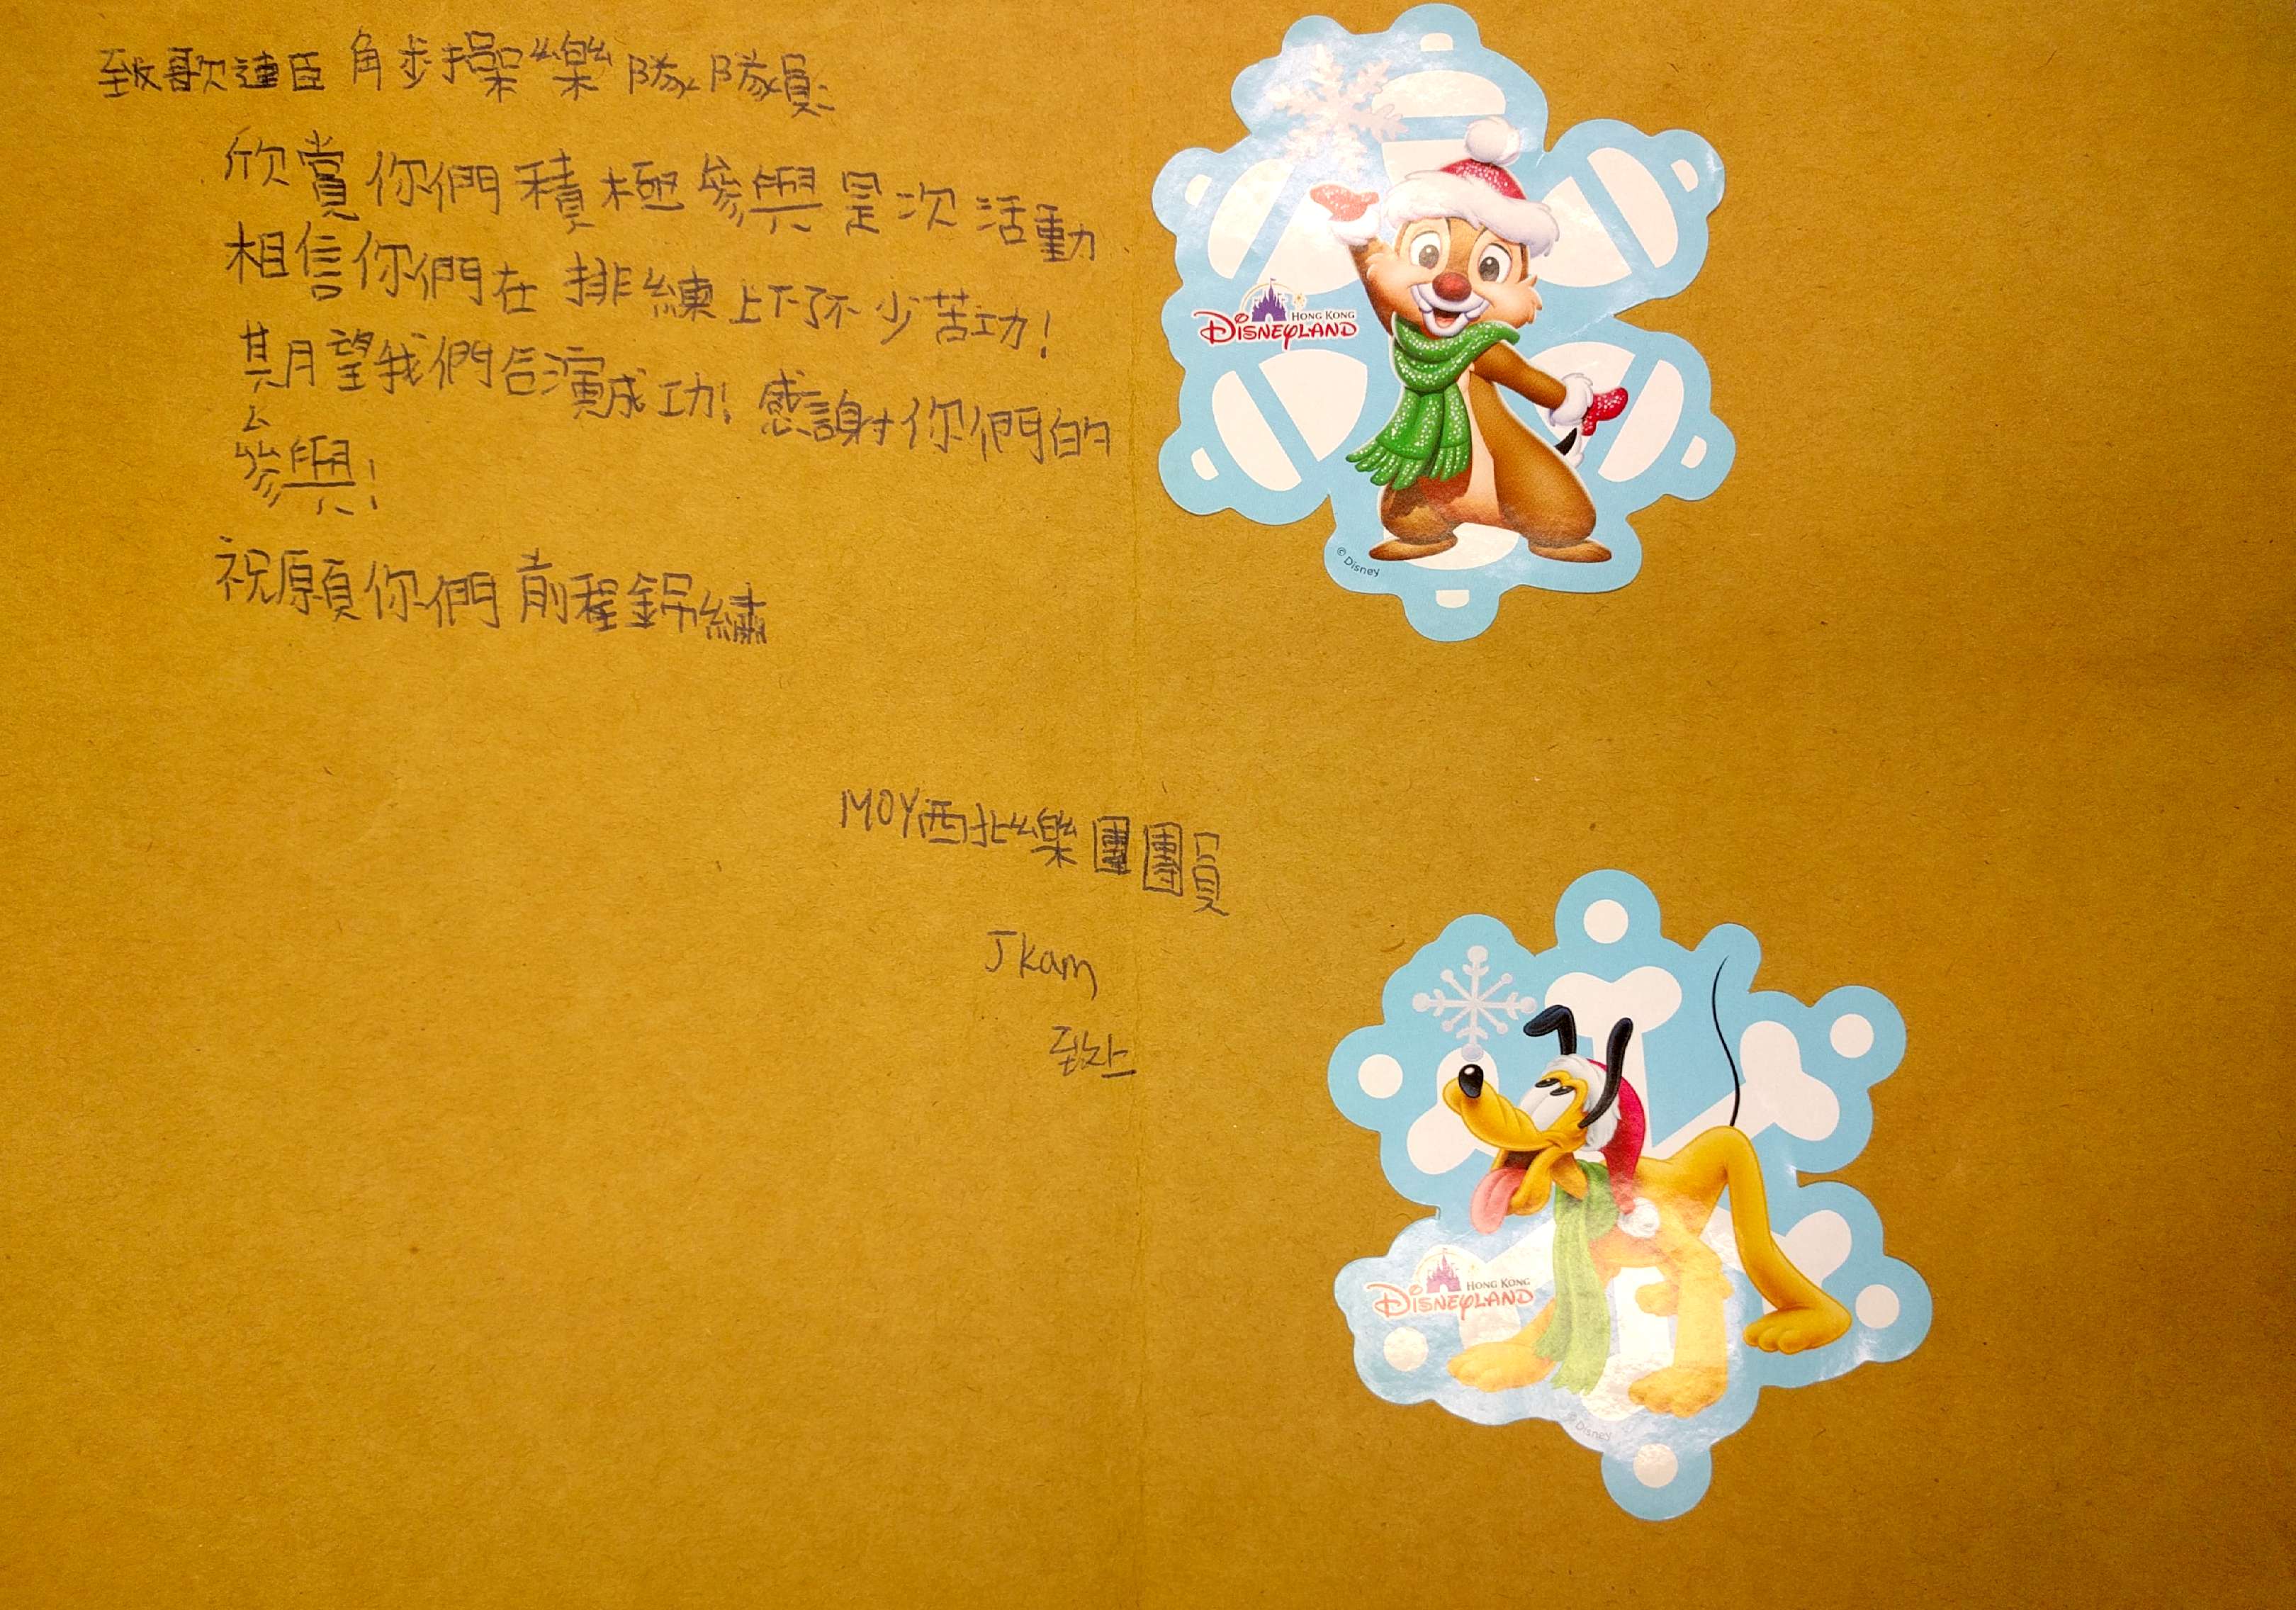 致歌連臣角步操樂隊隊員:
欣賞你們積極參與是次活動
相信你們在排練上下了不少苦功!
期望我們合演成功!感謝你們的
參與!
祝願你們前程錦繡
MOY西北樂團團員
J kam
致上
HONG KONG
DISNEYLAND
© Disney
HONG KONG
DISNEYLAND
© Disney